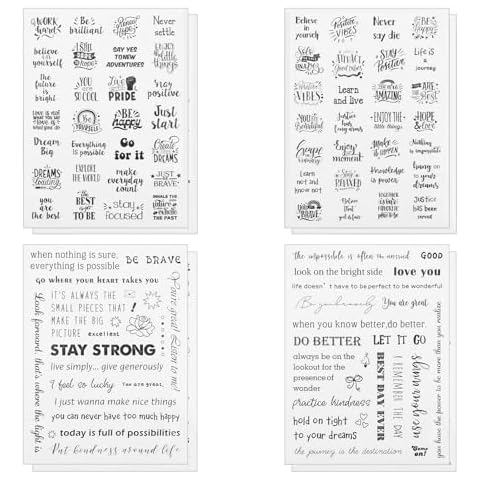 WORK hard!
Be brilliant
Never settle
believe in yourself
SAY YES TO NEW ADVENTURES
enjoy the little things
the future is bright
YOU are SO COOL
Live with PRIDE
stay positive
Be YOURSELF
BE happy
Just start
Dream Big
Everything is possible
Go for it
Create your DREAMS
DREAMS Loading
EXPLORE THE WORLD
make everyday count
JUST BRAVE
you are the best
the BEST is yet TO BE
stay focused
INHALE THE future EXHALE THE PAST
Believe in yourself
Positive VIBES
Never say die
Be Happy
Stay Positive
Life is a journey
VIBES
Learn and live
you are AMAZING
You are Beautiful
Justice has long arms
ENJOY THE little things
HOPE & love
Escape
Enjoy the moment
Make it HAPPEN
Nothing is impossible
Learn not and know not
Stay RELAXED
Knowledge is power
hang on to your dreams
BRAVE
Justice has been served
when nothing is sure,
everything is possible
BE BRAVE
GO WHERE YOUR HEART TAKES YOU
IT'S ALWAYS THE
SMALL PIECES THAT
MAKE THE BIG
PICTURE
excellent
STAY STRONG
live simply... give generously
I feel so lucky
You are great,
I just wanna make nice things
you can never have too much happy
today is full of possibilities
Put kindness around life
Look forward, that's where the light is
You're great! Listen to me!
the impossible is often the untried
GOOD
look on the bright side
love you
life doesn't have to be perfect to be wonderful
Be you bravely
You are great.
when you know better, do better.
DO BETTER
LET IT GO
always be on the
lookout for the
presence of
wonder
practice kindness
hold on tight
to your dreams
the journey is the destination
BEST DAY EVER
I REMEMBER THE DAY
shine your shine
you have the power to be more than you realize.
Come on!